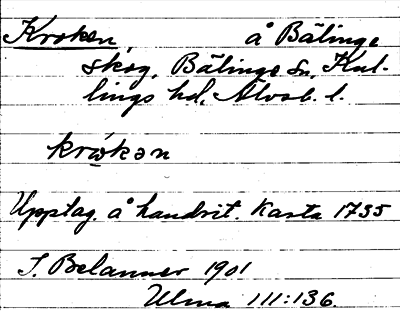 Kroken, å Bälinge
skog, Bälinge sn, Kul-
lings hd, Älvsb. l.
krωkən
Upptag. å handrit. karta 1735
T. Belanner 1901
Ulma 111:136.